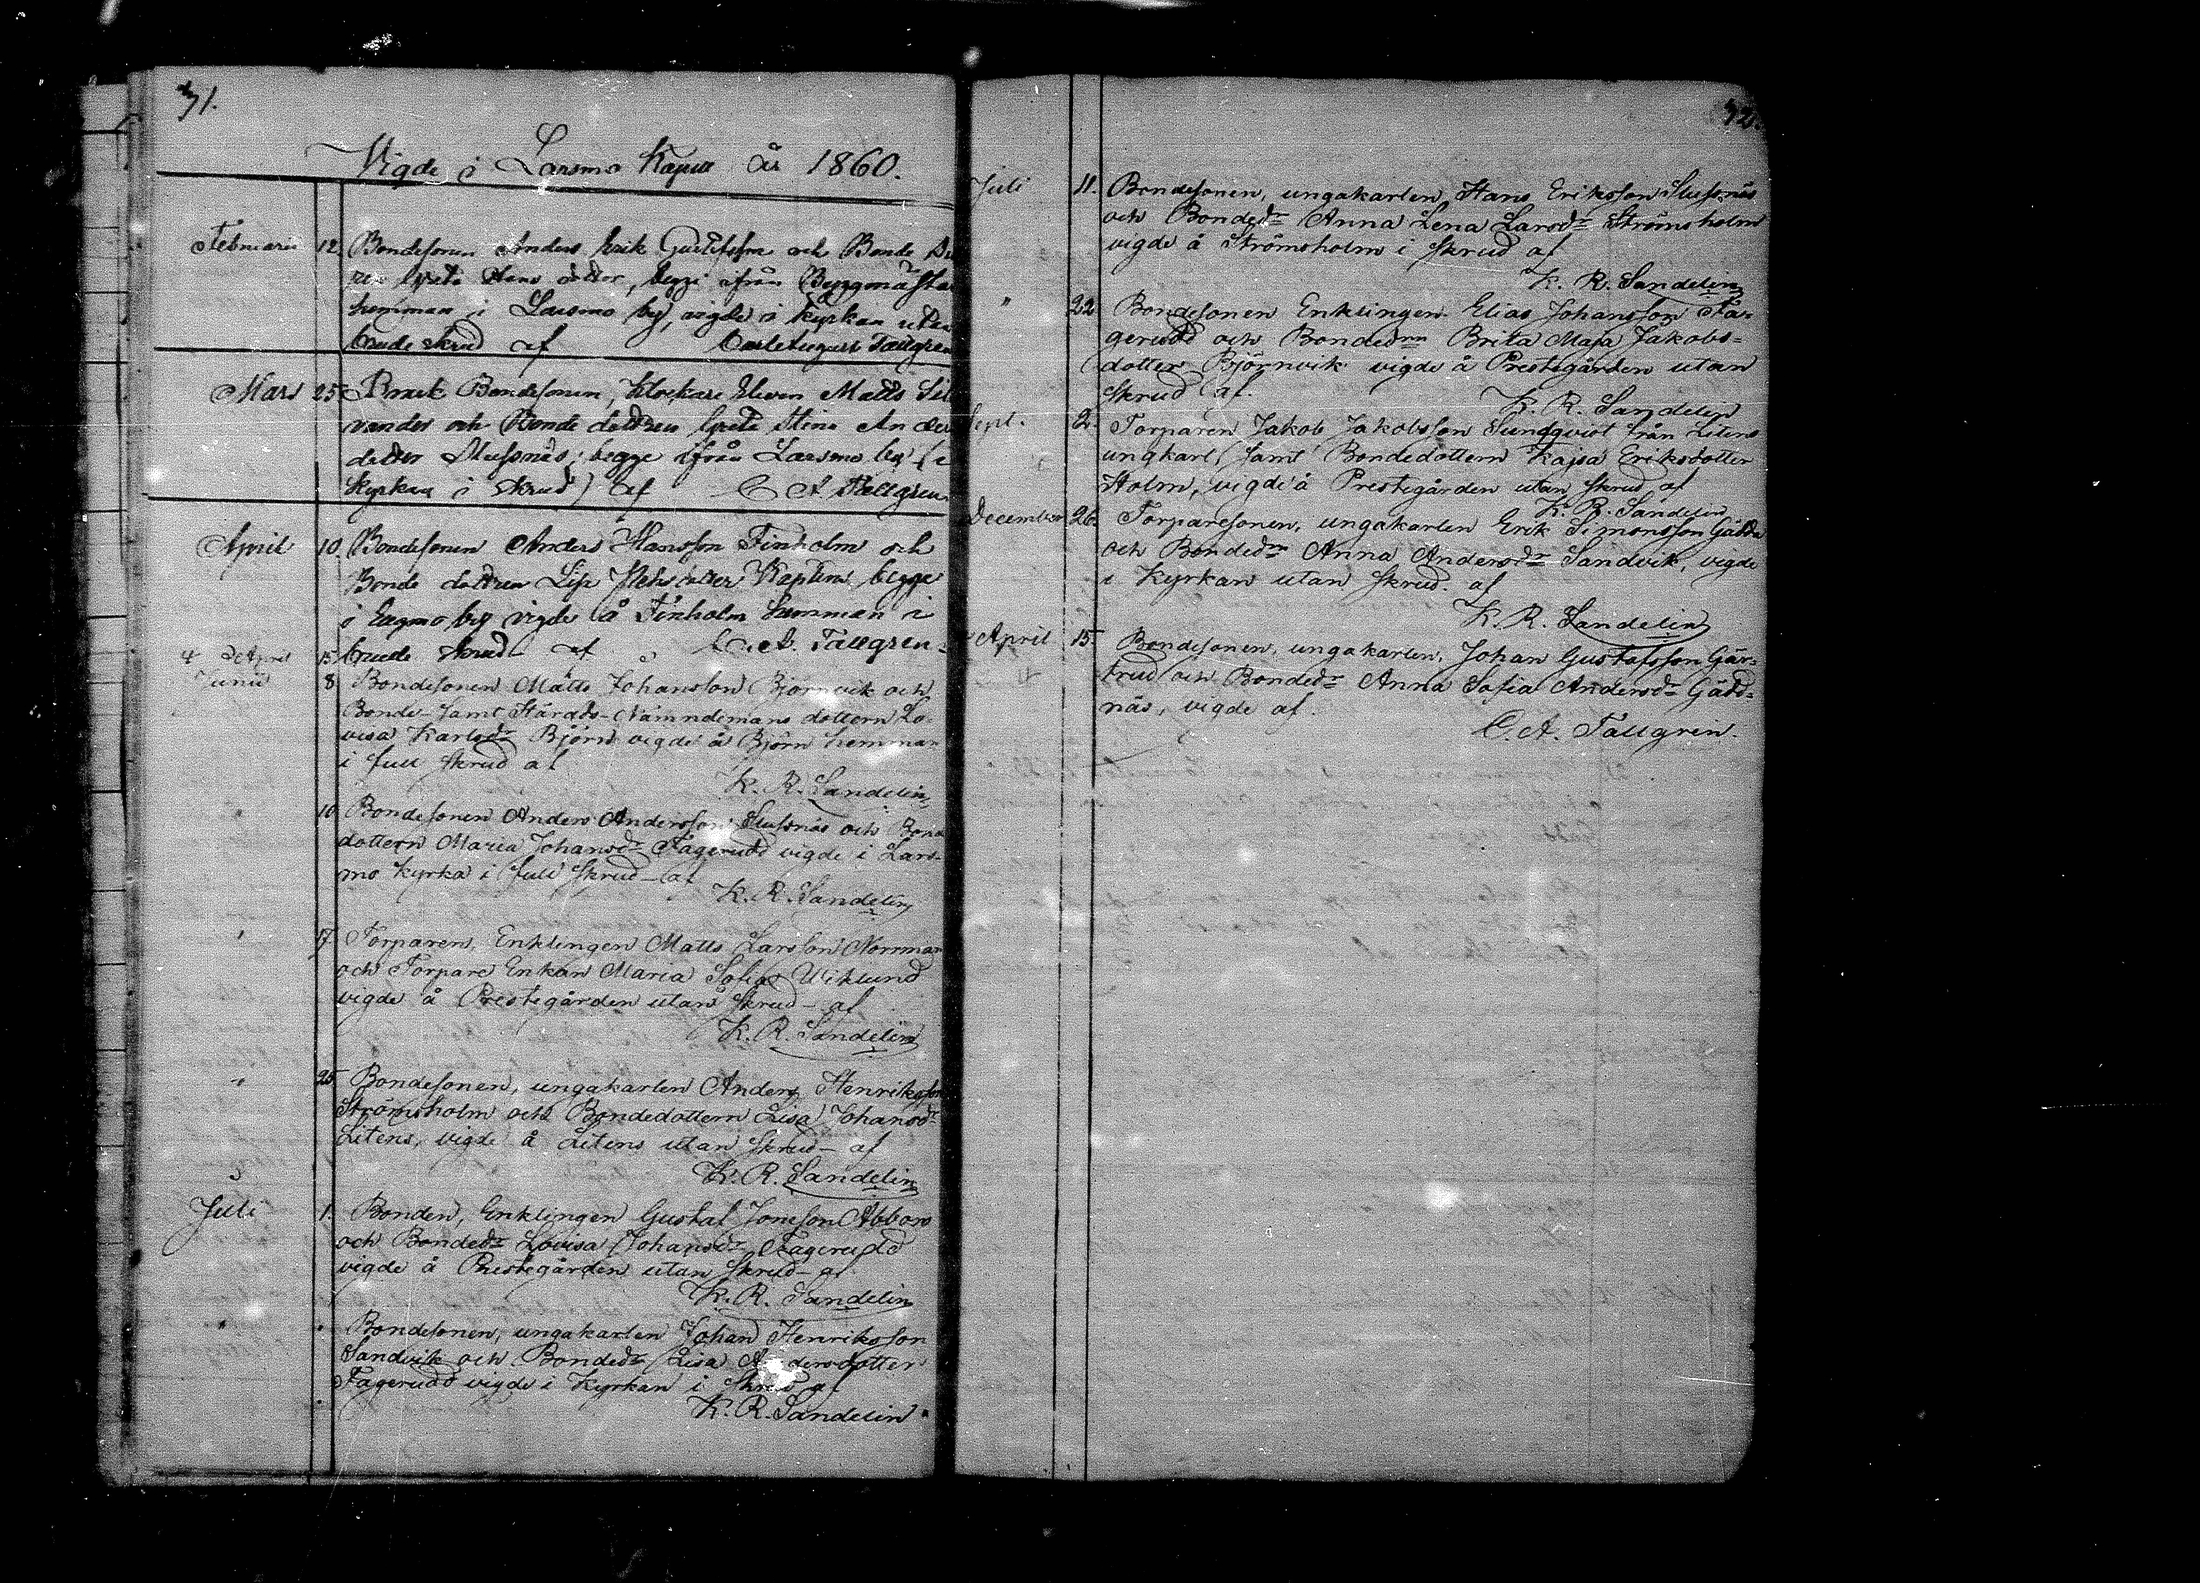 31.
Vigde i Larsmo Kapell år 1860.
Februari 12. Bondesonen Anders Erik Gustafsson och Bonde
Greta Hans dotter, begge ifrån Byggmästar
hemman i Larsmo by, vigde i kyrkan utan
brudeskrud af Carl August Tallgren
Mars 25. Bondesonen, Klockare Eleven Matts
vander och Bonde dottren Greta Stina Anders
dotter Slussnäs, begge ifrån Larsmo by (i
Kyrkan i skrud) af C A Tallgren
April 10. Bondesonen Anders Hansson Finholm och
Bonde dottren Lisa dotter begge
i Eugmo by vigde å Finholm hemman i
brude skrud af C. A. Tallgren
# April 15
Junii 8 Bondesonen Matts Johansson Björnvik och
Bonde- samt Härads-Nämndemans dottern Lo-
visa Karlsdr Björn vigde å Björn hemman
i full skrud af
K. R. Sandelin
" 10 Bondesonen Anders Andersson Slussnäs och Bond
dottern Maria Johansdr Fagerudd vigde i Lars-
mo Kyrka i full skrud – af
K. R. Sandelin
" 17 Torparen, Enklingen Matts Larsson Norrman
och Torpare Enkan Maria Sofia Wiklund
vigde å Prestegården utan skrud – af
K. R. Sandelin
" 25 Bondesonen, ungakarlen Anders Henriksson
Strömsholm och Bondedottern Lisa Johansdr
Litens, vigde å Litens utan skrud – af
K. R. Sandelin
Juli 1. Bonden, Enklingen Gustaf Abbors
och Bondedr Lovisa Johansdr Fagerudd
vigde å Prestegården utan skrud – af
K. R. Sandelin
" " Bondesonen, ungakarlen Johan Henriksson
Sandvik och Bondedr Lisa Andersdotter
Fagerudd vigde i Kyrkan i skrud af
K. R. Sandelin
32.
Juli 11. Bondesonen, ungakarlen Hans Eriksson Slussnäs
och Bondedr Anna Lena Larsdr Strömsholm
vigde å Strömsholm i skrud af
K. R. Sandelin
" 22 Bondesonen Enklingen Elias Johansson Fa-
gerudd och Bondedrn Brita Maja Jakobs-
dotter Björnvik vigde å Prestegården utan
skrud af.
K. R. Sandelin
Sept. 2. Torparen Jakob Jakobsson Sundqvist från Litens
ungkarl, samt Bondedottern Kajsa Eriksdotter
Holm, vigde å Prestegården utan skrud af
K. R. Sandelin
December 26. Torparesonen, ungakarlen Erik Simonsson Gädda
och Bondedrn Anna Andersdr Sandvik, vigde
i Kyrkan utan skrud. af
K. R. Sandelin
April 15. Bondesonen, ungakarlen, Johan Gustafsson Gär-
# trud och Bondedr Anna Sofia Andersdr Gädd-
näs, vigde af.
C. A. Tallgren.